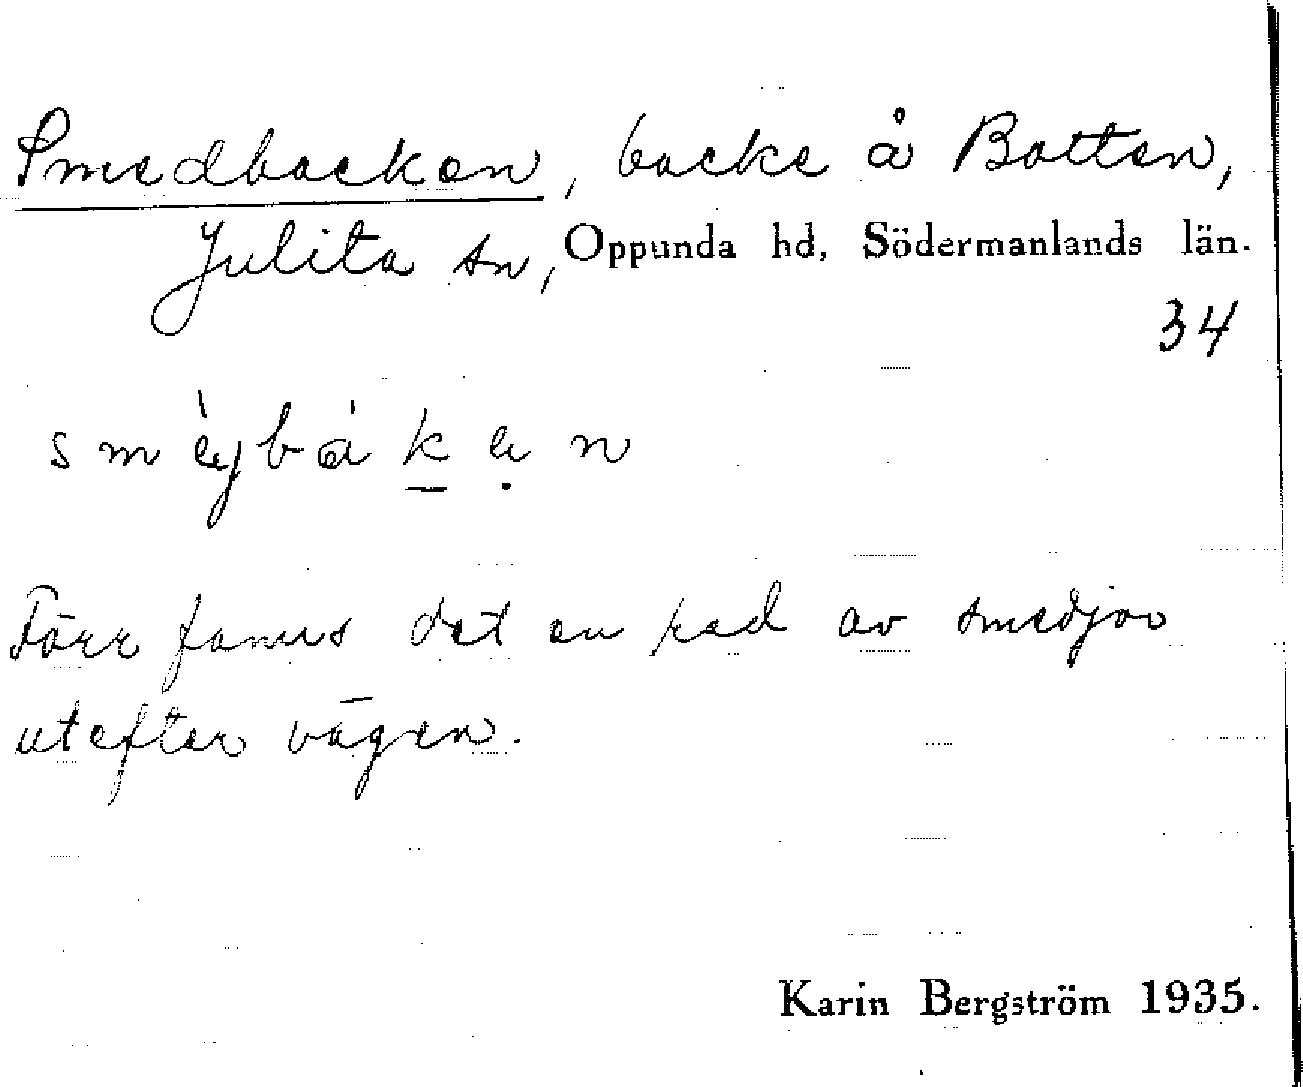 Smedbacken, backe å Botten,
Julita sn, Oppunda hd, Södermanlands län.
34
smèybákẹn
Förr fanns det en rad av smedjor
utefter vägen.
Karin Bergström 1935.